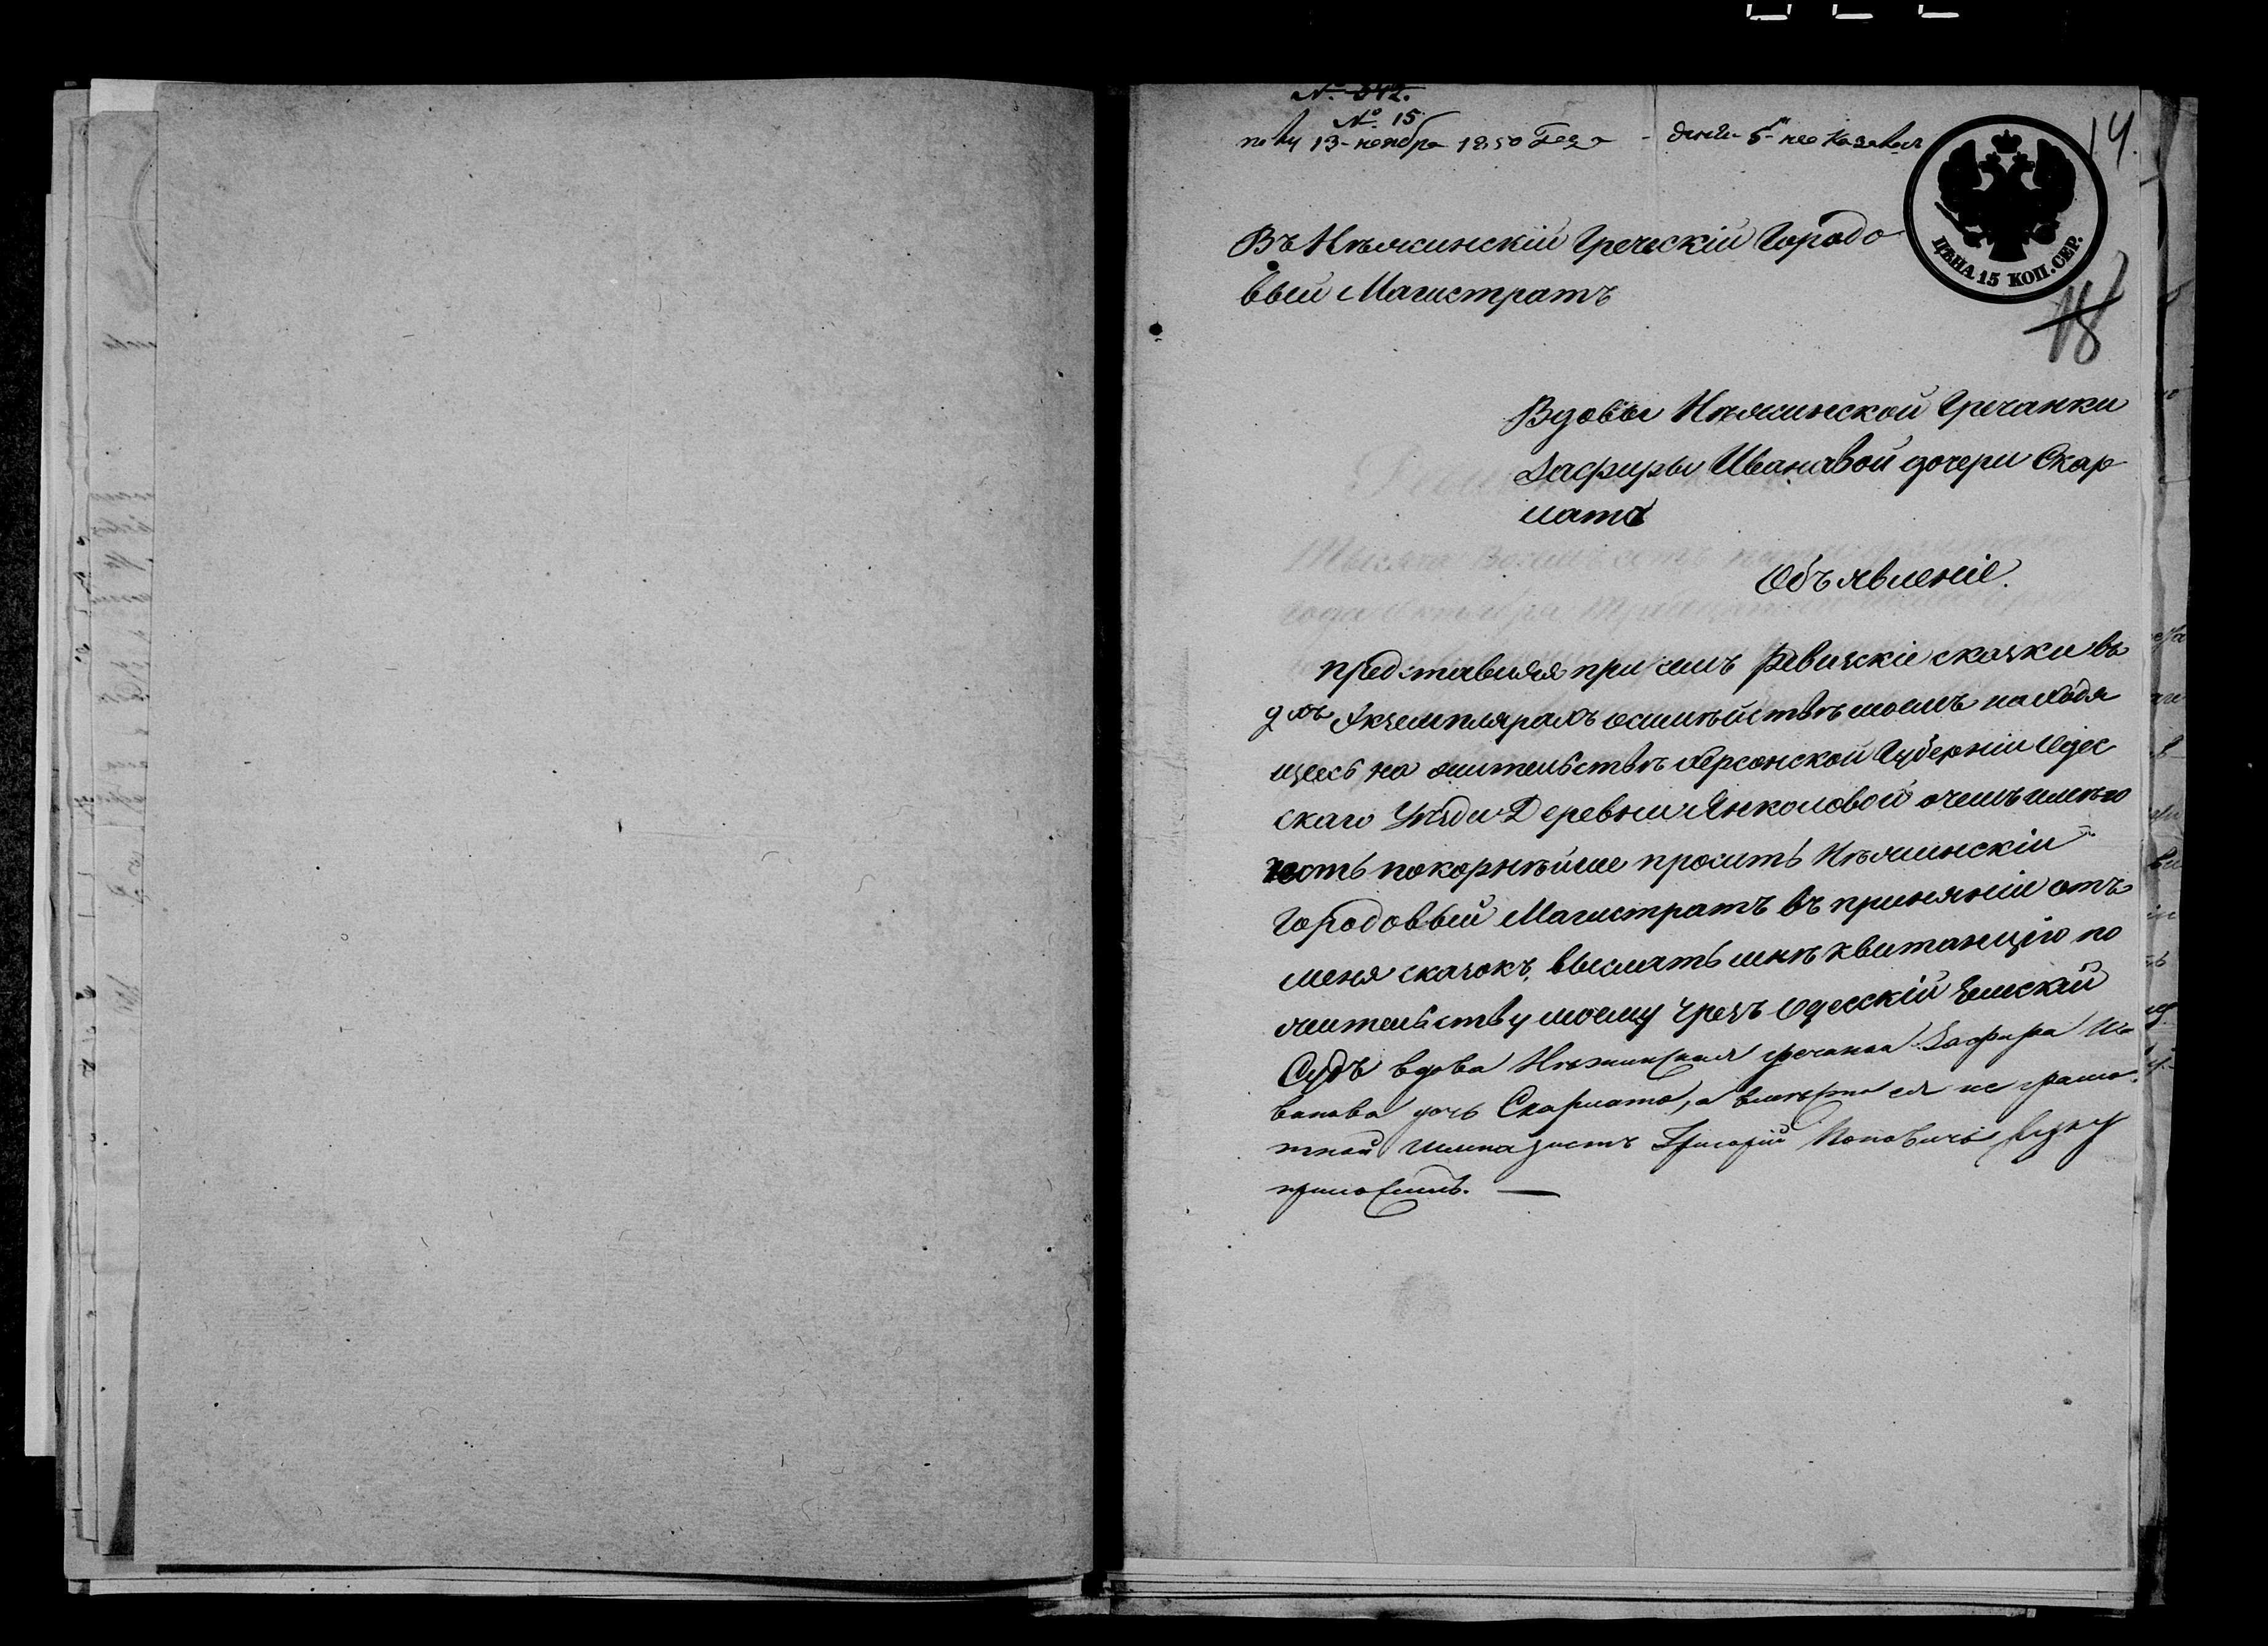 № 342.
№ 15
13 ноября 1850 Года
14.
ЦѢНА 15 КОП. СЕР.
18
Въ Нѣжинскій Греческій Городо
вый Магистратъ
Вдовы Нѣжинской Гречанки
Зафиры Ивановой дочери Скар
лато
Объявленіе.
Представляя при семъ Ревизскіе сказки въ
2хъ Экземплярахъ о семѣйствѣ моемъ находя
щеесь на жительствѣ Херсонской Губерніи Одес
скаго Уѣзда Деревни Янколовой о чемъ имѣю
честь покорнѣйше просить Нѣжинскій
Городовый Магистратъ въ принятіи отъ
меня сказокъ, выслать мнѣ квитанцію по
жительству моему чрезъ Одесскій Земскій
Судъ вдова Нѣжинская гречанка Зафира И
ванова дочь Скарлато, а вмѣсто ея не грамо
тной Григорій Поповичь руку
приложилъ. —